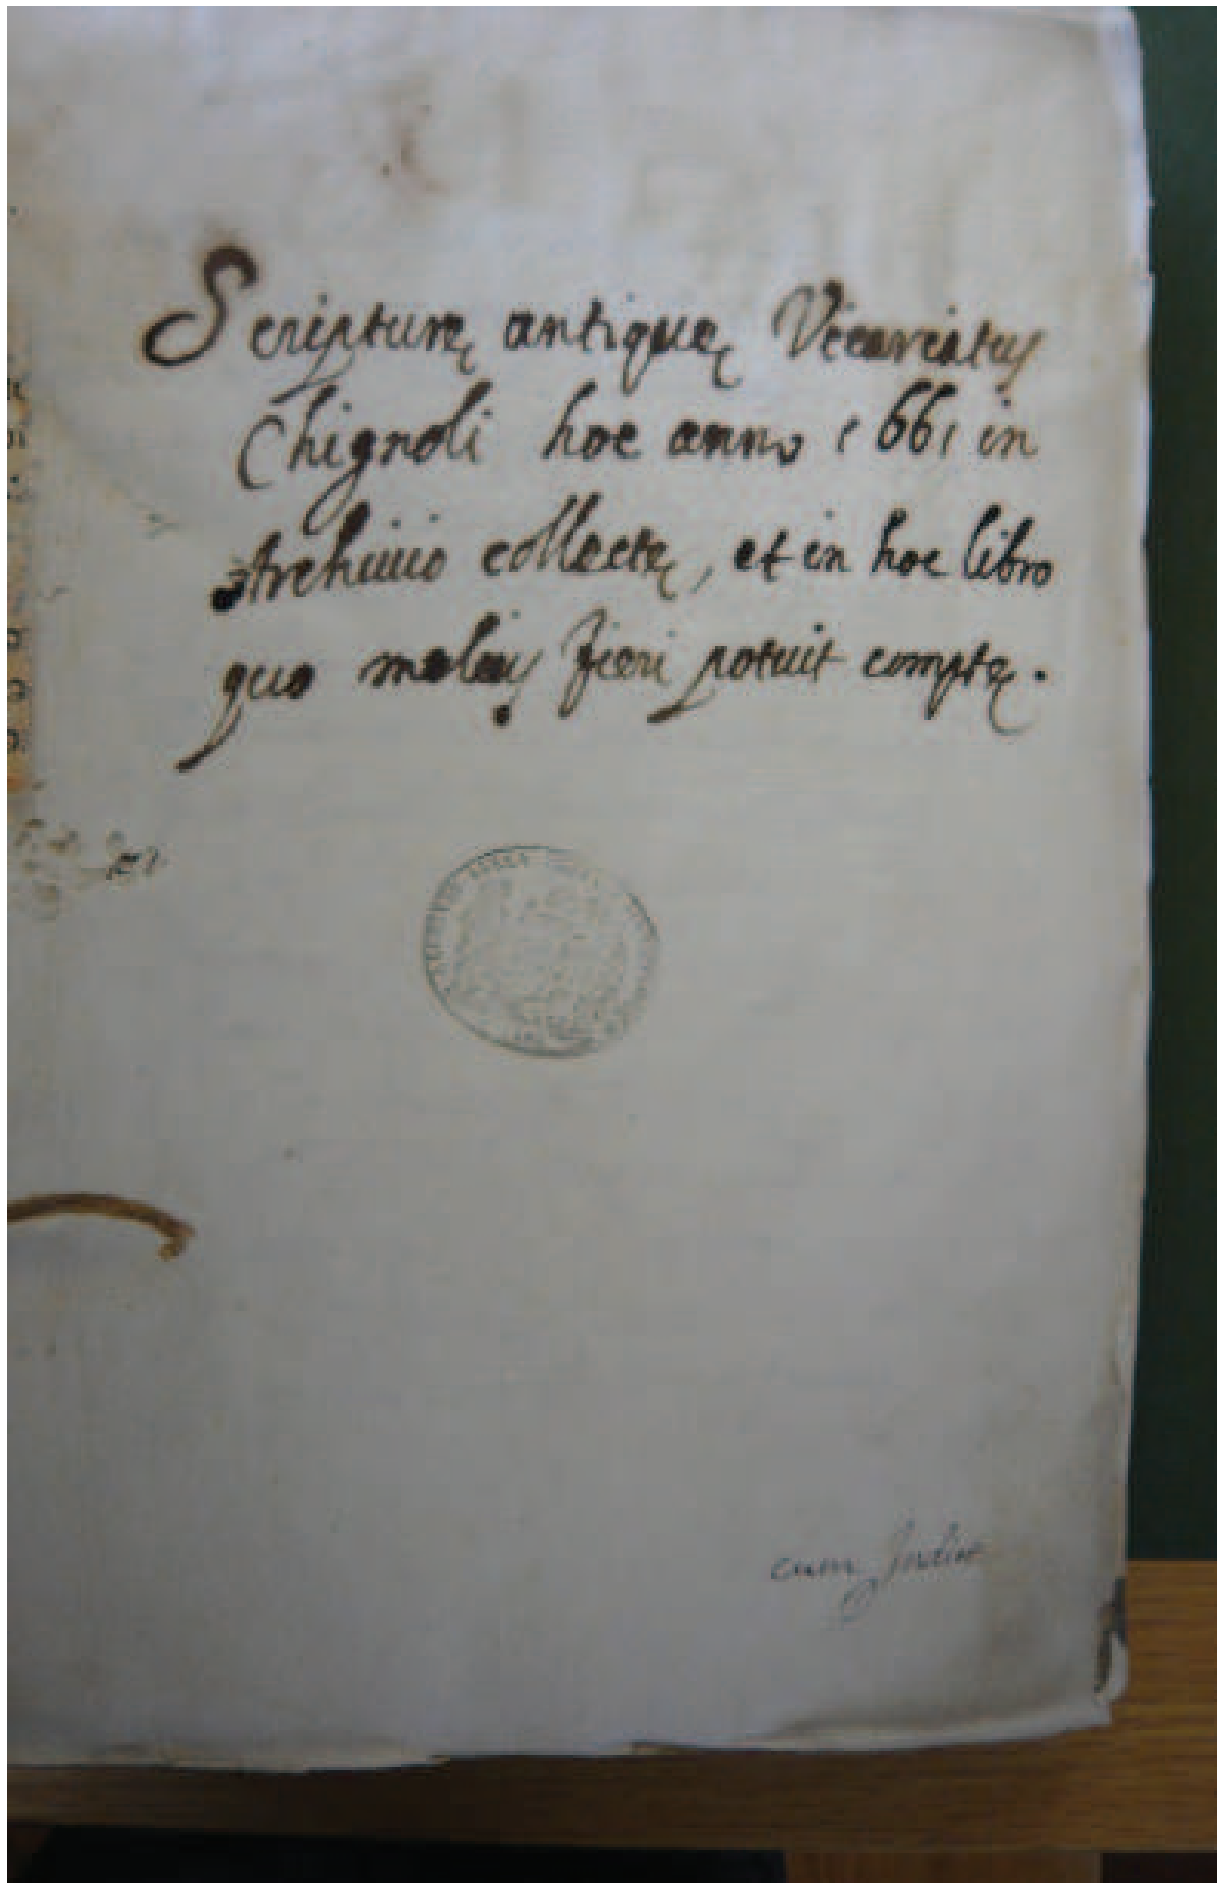 Scripturę antiquę Vicariatus
Chignoli hoc anno 1661 in
Archiuio collectę, et in hoc libro
quo melius fieri potuit comptę.
cum Indice